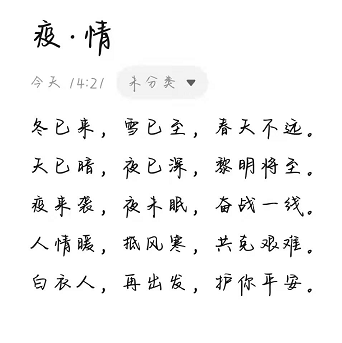 疫·情
今天 14:21 未分类
冬已来，雪已至，春天不远。
天已暗，夜已深，黎明将至。
疫来袭，夜未眠，奋战一线。
人情暖，抵风寒，共克艰难。
白衣人，再出发，护你平安。